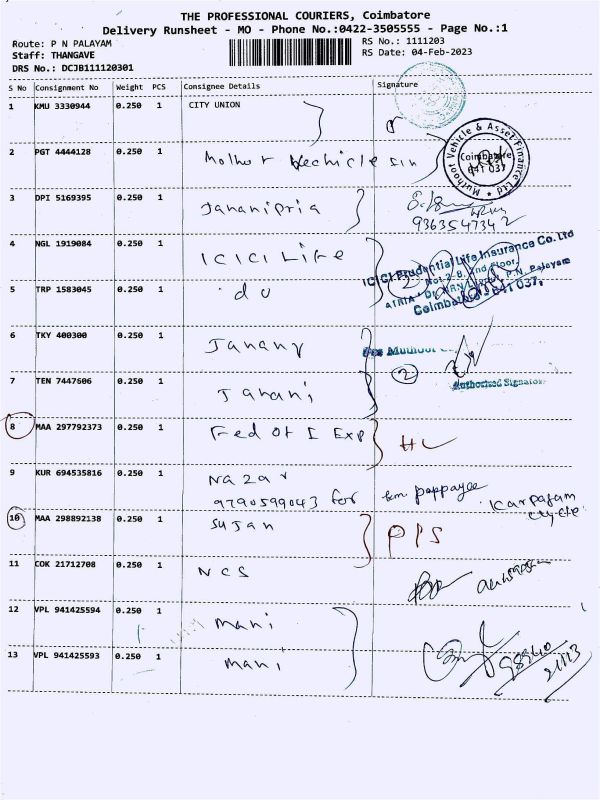 THE PROFESSIONAL COURIERS, Coimbatore
Delivery Runsheet - MO - Phone No.:0422-3505555 - Page No.:1
Route: P N PALAYAM
RS No.: 1111203
Staff: THANGAVE
RS Date: 04-Feb-2023
DRS No.: DCJB111120301
S No Consignment No Weight PCS Consignee Details Signature
1 KMU 3330944 0.250 1 CITY UNION
2 PGT 4444128 0.250 1
Muthoot Vehicle & Asset Finance Ltd
Coimbatore
641 037
3 DPI 5169395 0.250 1 Jananipria
9363547342
4 NGL 1919084 0.250 1 ICICI Life
ICICI Prudential Life Insurance Co. Ltd
2nd Floor,
P.N. Palayam
Coimbatore - 641 037.
5 TRP 1583045 0.250 1 do
6 TKY 400300 0.250 1 Janany
For Muthoot
7 TEN 7447606 0.250 1 Janani
2
Authorised Signator
8 MAA 297792373 0.250 1 Fed Ot I Exp
HL
9 KUR 694535816 0.250 1 Nazar
9790599043 for
Karpagam
10 MAA 298892138 0.250 1 Sujan
PPS
11 COK 21712708 0.250 1 NCS
12 VPL 941425594 0.250 1 Mani
13 VPL 941425593 0.250 1 Mani
98940
21113